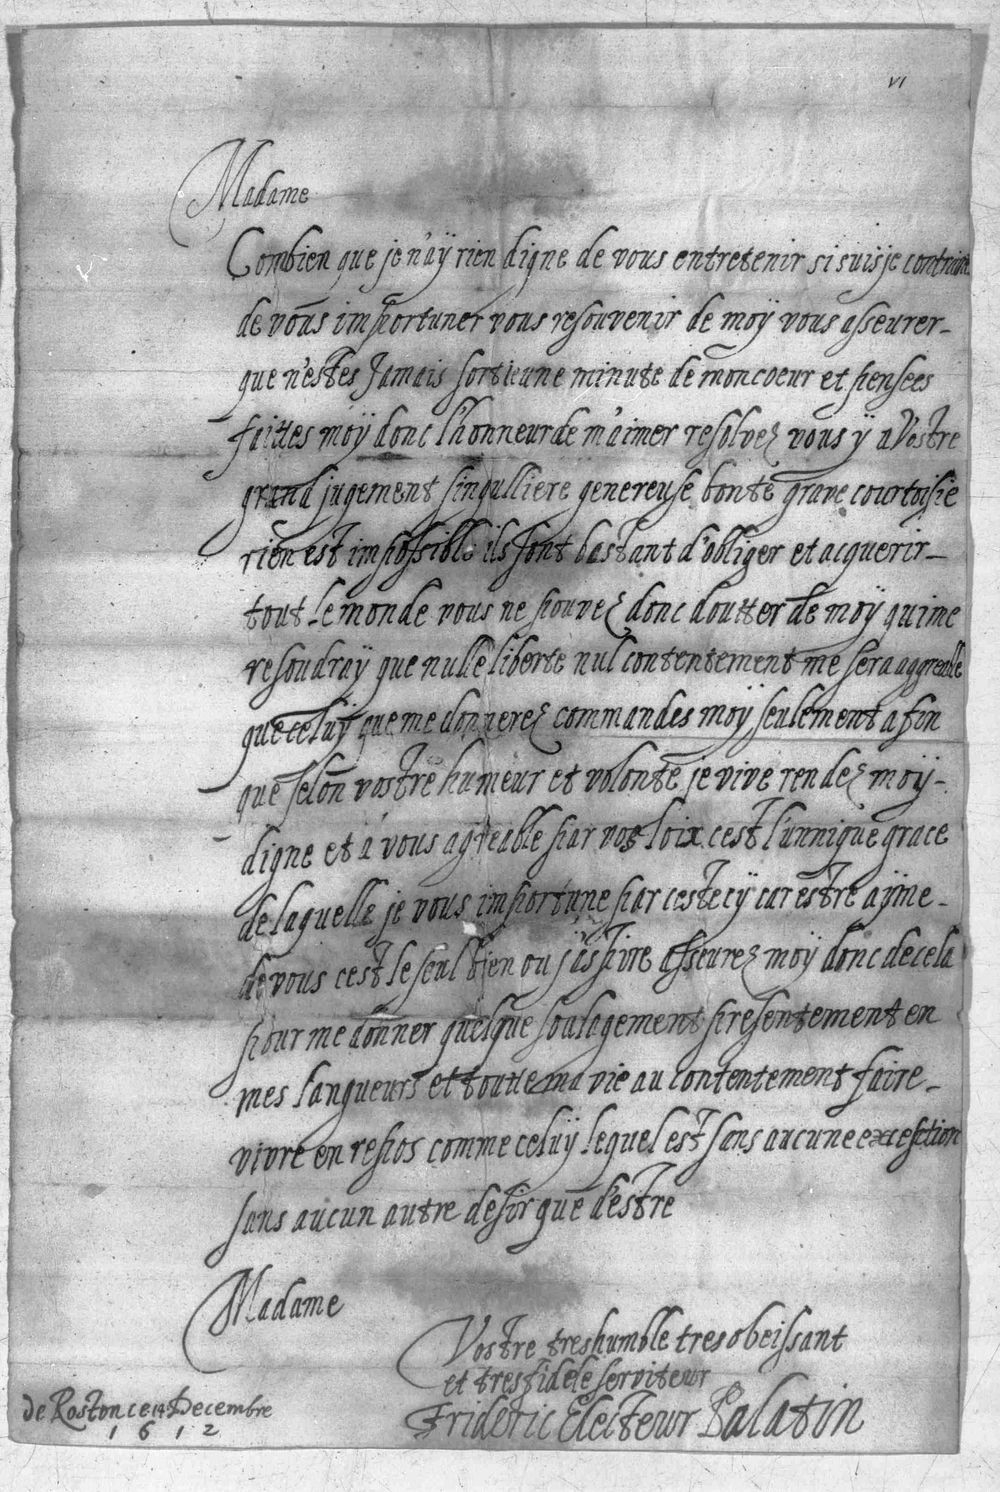 VI
Madame
Combien que je n'aÿ rien digne de vous entretenir si suis je
de vous importuner vous resouvenir de moÿ vous asseurer
que n'estes Jamais sortie une minute de mon coeur et pensees
faittes moÿ donc l'honneur de m'aimer resolvez vous ÿ a Vostre
grand jugement singulliere genereuse bonte grave courtoisie
rien est impossible ils sont bastant d'obliger et acquerir
tout le monde vous ne pouvez donc doutter de moÿ qui me
resoudraÿ que nulle liberte nul contentement me sera aggreable
que celuÿ que me donnerez commandes moÿ seulement afin
que selon vostre humeur et volonte je vive rendez moÿ
digne et a vous agreable par vos loix cest l'unnique grace
de laquelle je vous importune par ceste cÿ car estre aÿme
de vous cest le seul bien ou j'aspire asseurez moÿ donc de cela
pour me donner quelque soulagement presentement en
mes langueurs et toutte ma vie au contentement faire
vivre en repos comme celuÿ lequel est sans aucune exception
sans aucun autre desir que d'estre
Madame
Vostre tres humble tres obeissant
et tres fidele serviteur
Frideric Electeur Palatin
de Roston ce 14 Decembre
1612